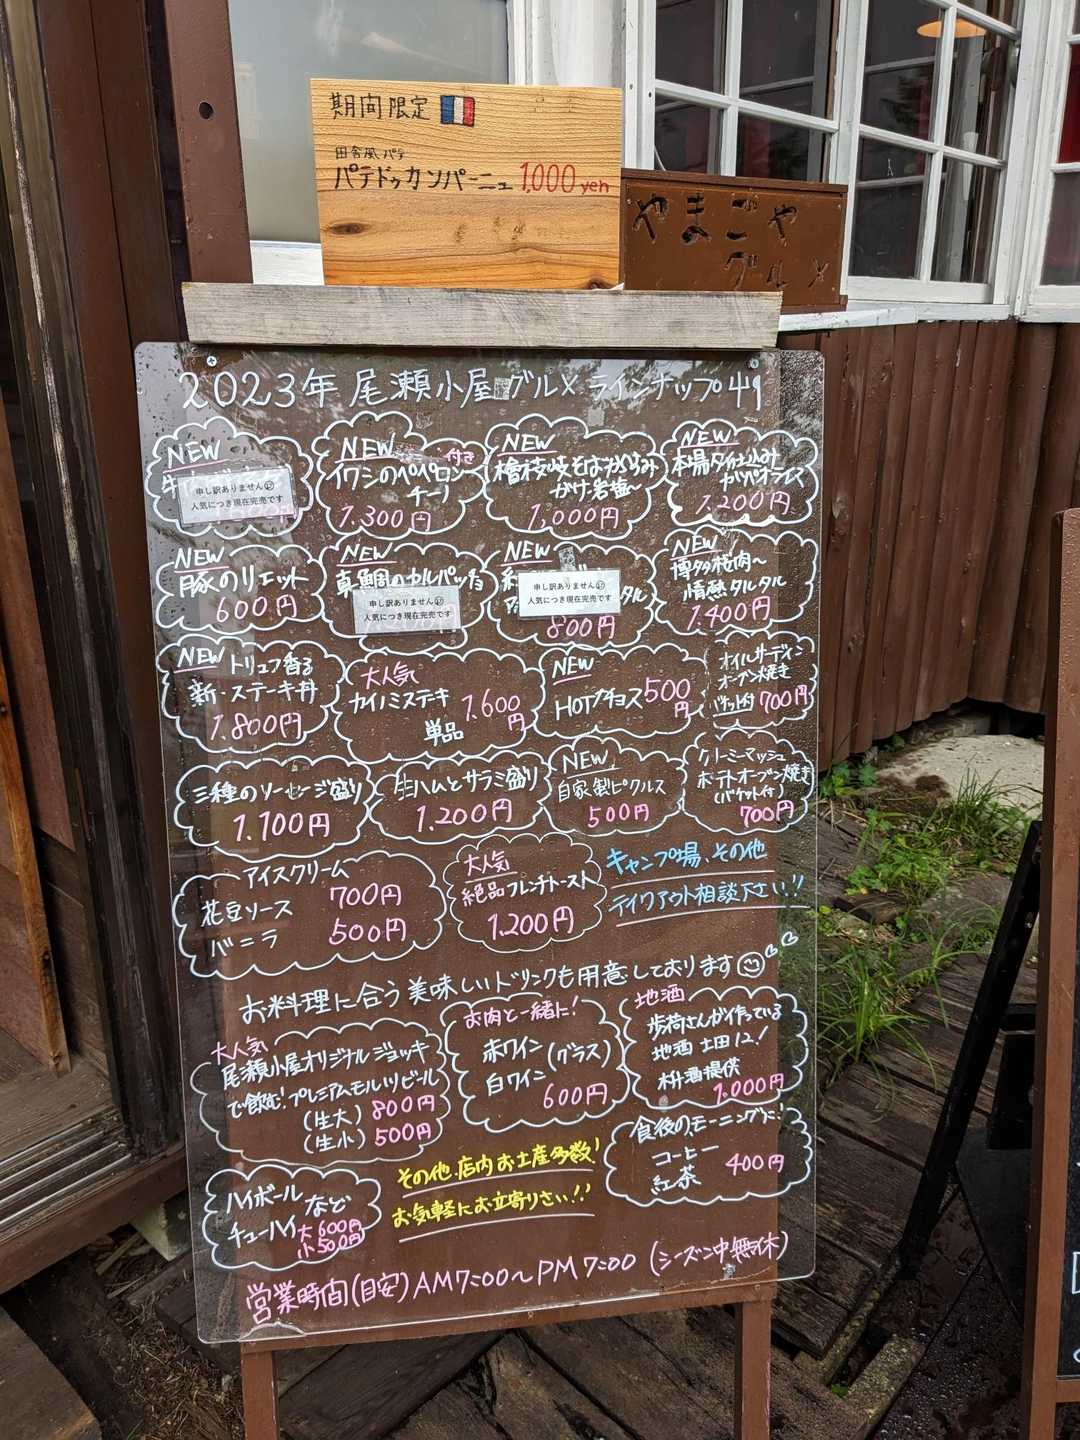 期間限定
田舎風パテ
パテドゥカンパーニュ 1,000 yen
やまごや
グルメ
2023年 尾瀬小屋 グルメ ラインナップ
NEW
牛
申し訳ありません
人気につき現在完売です
NEW 付き
イワシのペペロン
チーノ
1,300円
NEW
檜枝岐そば
がけ岩塩〜
1,000円
NEW
本場タイ仕込み
ガパオライス
1,200円
NEW
豚のリエット
600円
NEW
真鯛のカルパッチョ
申し訳ありません
人気につき現在完売です
NEW
申し訳ありません
人気につき現在完売です
タル
800円
NEW
博多桜肉〜
情熱タルタル
1,400円
NEW トリュフ香る
新・ステーキ丼
1,800円
大人気
カイノミステーキ
単品
1,600円
NEW
HOTプチョス 500円
オイルサーディン
オーブン焼き
バケット付 700円
三種のソーセージ盛り
1,100円
生ハムとサラミ盛り
1,200円
NEW
自家製ピクルス
500円
クリーミーマッシュ
ポテトオーブン焼き
(バケット付)
700円
アイスクリーム
花豆ソース 700円
バニラ 500円
大人気
絶品フレンチトースト
1,200円
キャンプ場、その他
テイクアウト相談下さい!!
お料理に合う美味しいドリンクも用意しております
大人気
尾瀬小屋オリジナルジョッキ
で飲む!プレミアムモルツビール
(生大) 800円
(生小) 500円
お肉と一緒に!
赤ワイン (グラス)
白ワイン 600円
地酒
歩荷さんが作っている
地酒 土田12!
枡酒提供
1,000円
食後の、モーニングに!
コーヒー
紅茶 400円
ハイボール など
チューハイ 大600円
小500円
その他、店内お土産多数!
お気軽にお立寄りさい!!
営業時間(目安) AM7:00〜PM7:00 (シーズン中無休)